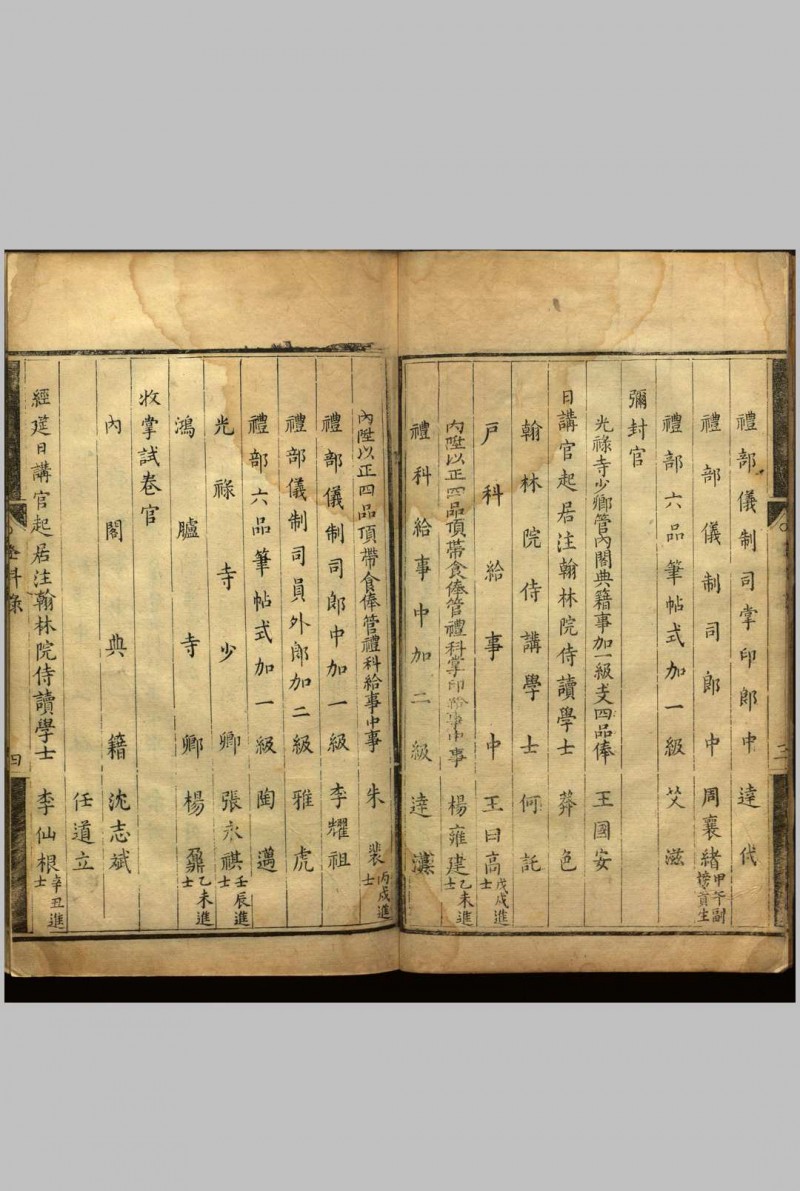 禮部儀制司掌印郎中達代
禮部儀制司郎中周襄緒甲午副榜貢生
禮部六品筆帖式加一級艾滋
彌封官
光祿寺少卿管內閣典籍事加一級支四品俸王國安
日講官起居注翰林院侍讀學士莽色
翰林院侍講學士何託
戶科給事中王曰高戊戌進士
內陞以正四品頂帶食俸管禮科掌印給事中事楊雍建乙未進士
禮科給事中加二級達漢
三
內陞以正四品頂帶食俸管禮科給事中事朱裴丙戌進士
禮部儀制司郎中加一級李耀祖
禮部儀制司員外郎加二級雅虎
禮部六品筆帖式加一級陶邁
光祿寺少卿張永祺壬辰進士
鴻臚寺卿楊鼐乙未進士
收掌試卷官
內閣典籍沈志斌
任道立
經筵日講官起居注翰林院侍讀學士李仙根辛丑進士
登科錄
四